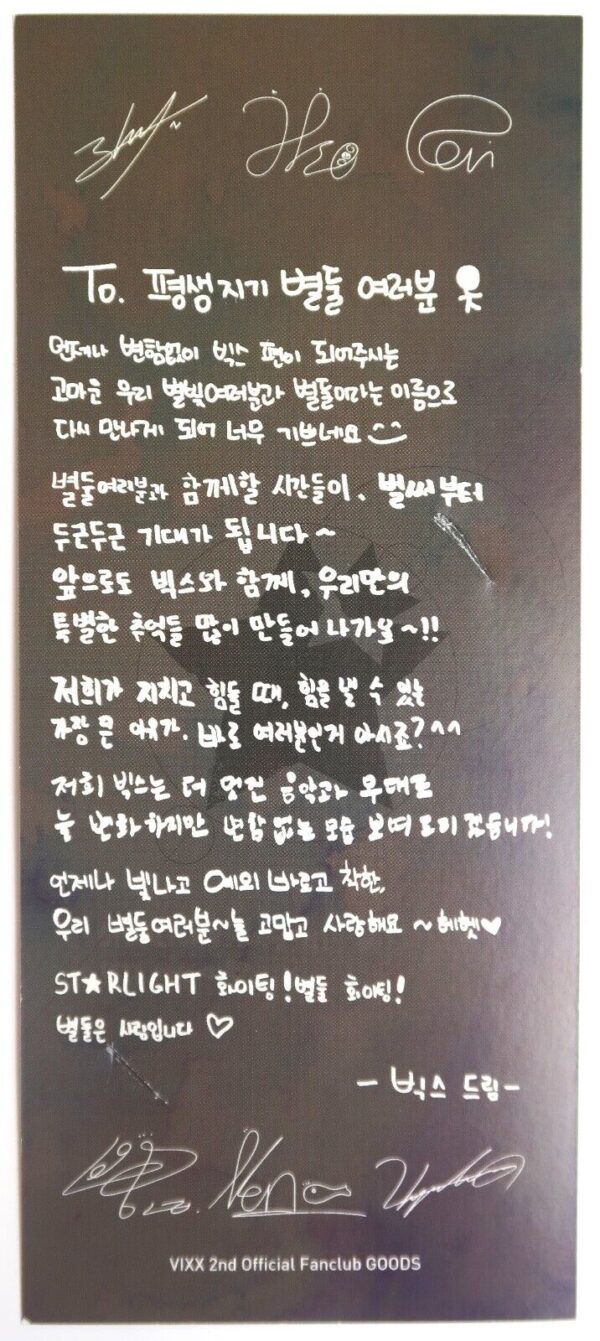 Ken
To. 평생지기 별둘 여러분
언제나 변함없이 빅스 편이 되어주시는
고마운 우리 별빛여러분과 별둘이라는 이름으로
다시 만나게 되어 너무 기쁘네요
별둘여러분과 함께할 시간들이, 벌써부터
두근두근 기대가 됩니다~
앞으로도 빅스와 함께, 우리만의
특별한 추억들 많이 만들어 나가요~!!
저희가 지치고 힘들 때, 힘을 낼 수 있는
가장 큰 이유가, 바로 여러분인거 아시죠?^^
저희 빅스는 더 멋진 음악과 무대로
늘 변화하지만 변함 없는 모습 보여 드리겠습니다!
언제나 빛나고 예의 바르고 착한,
우리 별둘여러분~늘 고맙고 사랑해요 ~헤헷♥
ST★RLIGHT 화이팅! 별둘 화이팅!
별둘은 사랑입니다 ♡
- 빅스 드림 -
VIXX 2nd Official Fanclub GOODS